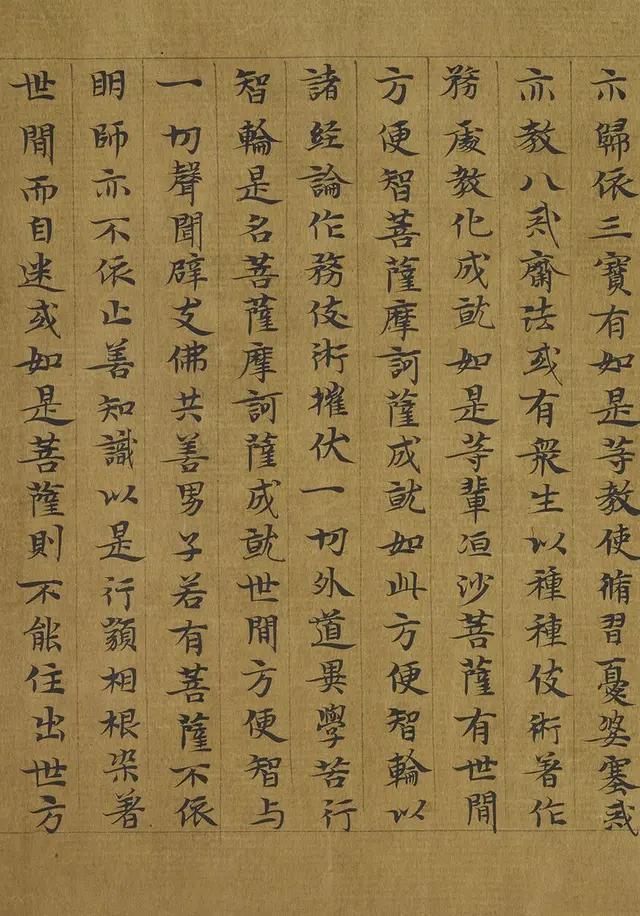 亦歸依三寶有如是等教使脩習憂婆塞戒
亦教八戒齋法或有衆生以種種伎術著作
務處教化成就如是等輩洹沙菩薩有世間
方便智菩薩摩訶薩成就如此方便智輪以
諸經論作務伎術摧伏一切外道異學苦行
智輪是名菩薩摩訶薩成就世間方便智与
一切聲聞辟支佛共善男子若有菩薩不依
明師亦不依止善知識以是行類相根染著
世間而自迷或如是菩薩則不能住出世方